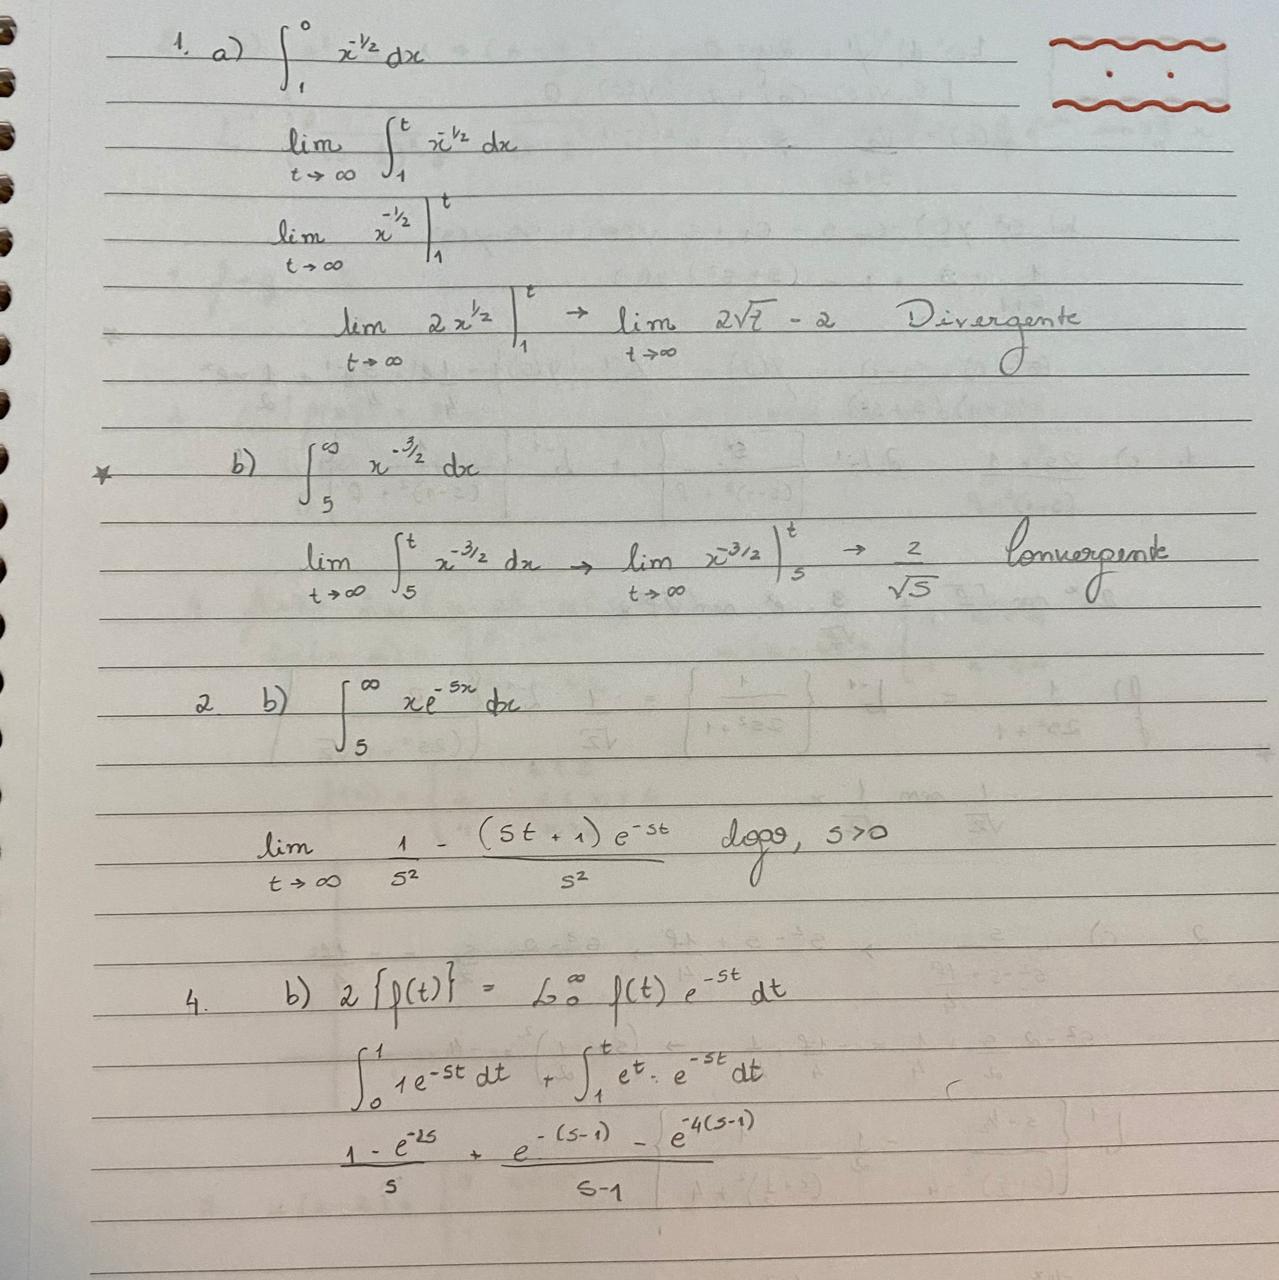 1. a) ∫₁⁰ x^{-1/2} dx
lim t→∞ ∫₁ᵗ x^{-1/2} dx
lim t→∞ x^{-1/2} |₁ᵗ
lim t→∞ 2x^{1/2} |₁ᵗ → lim t→∞ 2√t - 2 Divergente
b) ∫₅^∞ x^{-3/2} dx
lim t→∞ ∫₅ᵗ x^{-3/2} dx → lim t→∞ x^{-3/2} |₅ᵗ → 2/√5 Convergente
2. b) ∫₅^∞ xe^{-5x} dx
lim t→∞ 1/s² - (st + 1) e^{-st}/s² logo, s>0
4. b) 2 {f(t)} = ∫₀^∞ f(t) e^{-st} dt
∫₀¹ 1e^{-st} dt + ∫₁ᵗ eᵗ · e^{-st} dt
(1 - e^{-2s})/s + (e^{-(s-1)} - e^{-4(s-1)})/(s-1)